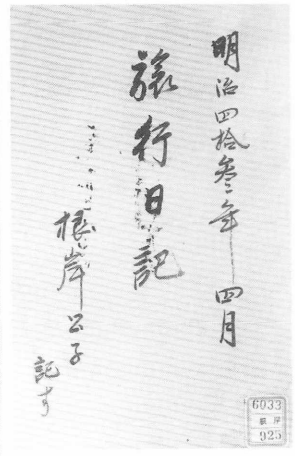 明治四拾参年四月
旅行日記
根岸公子
記す
6033
根岸
925